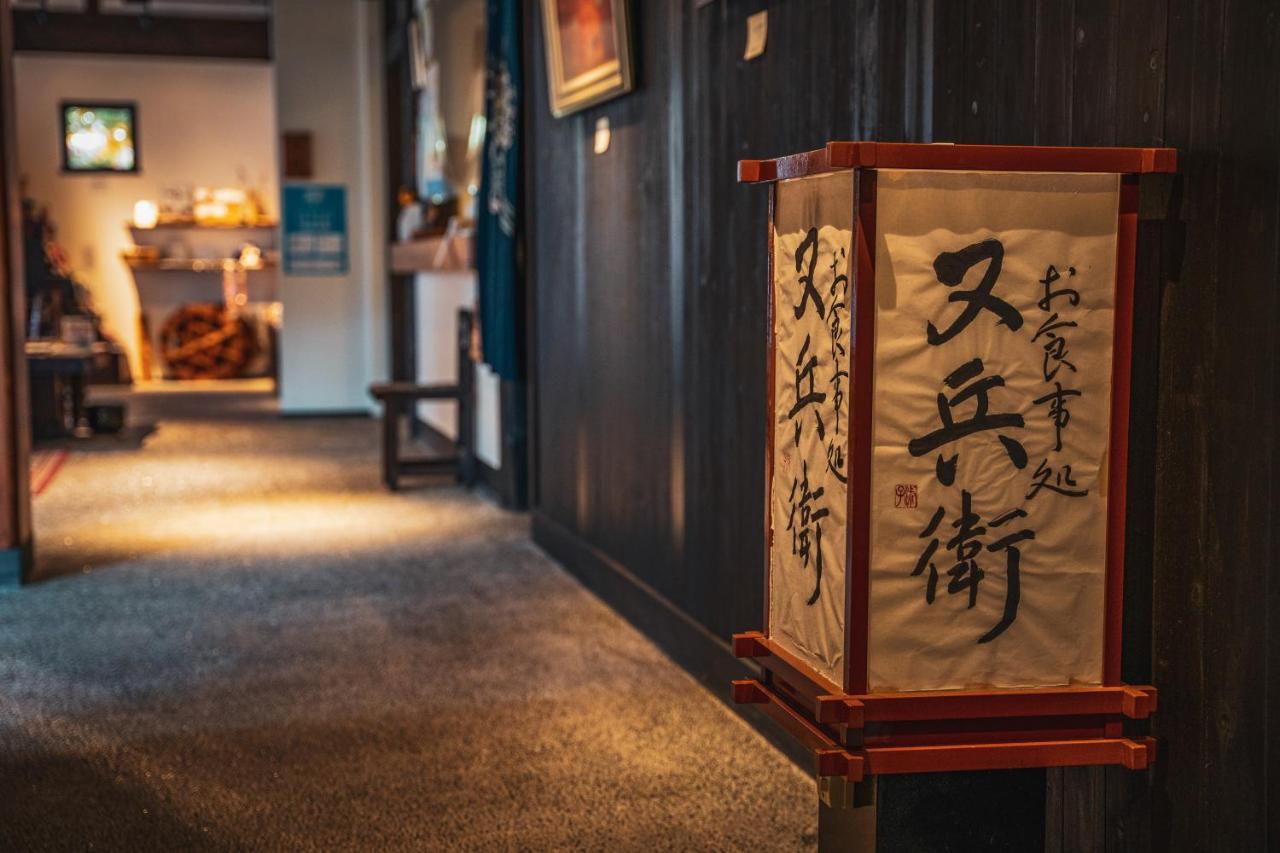 お食事処
又兵衛
お食事処
又兵衛